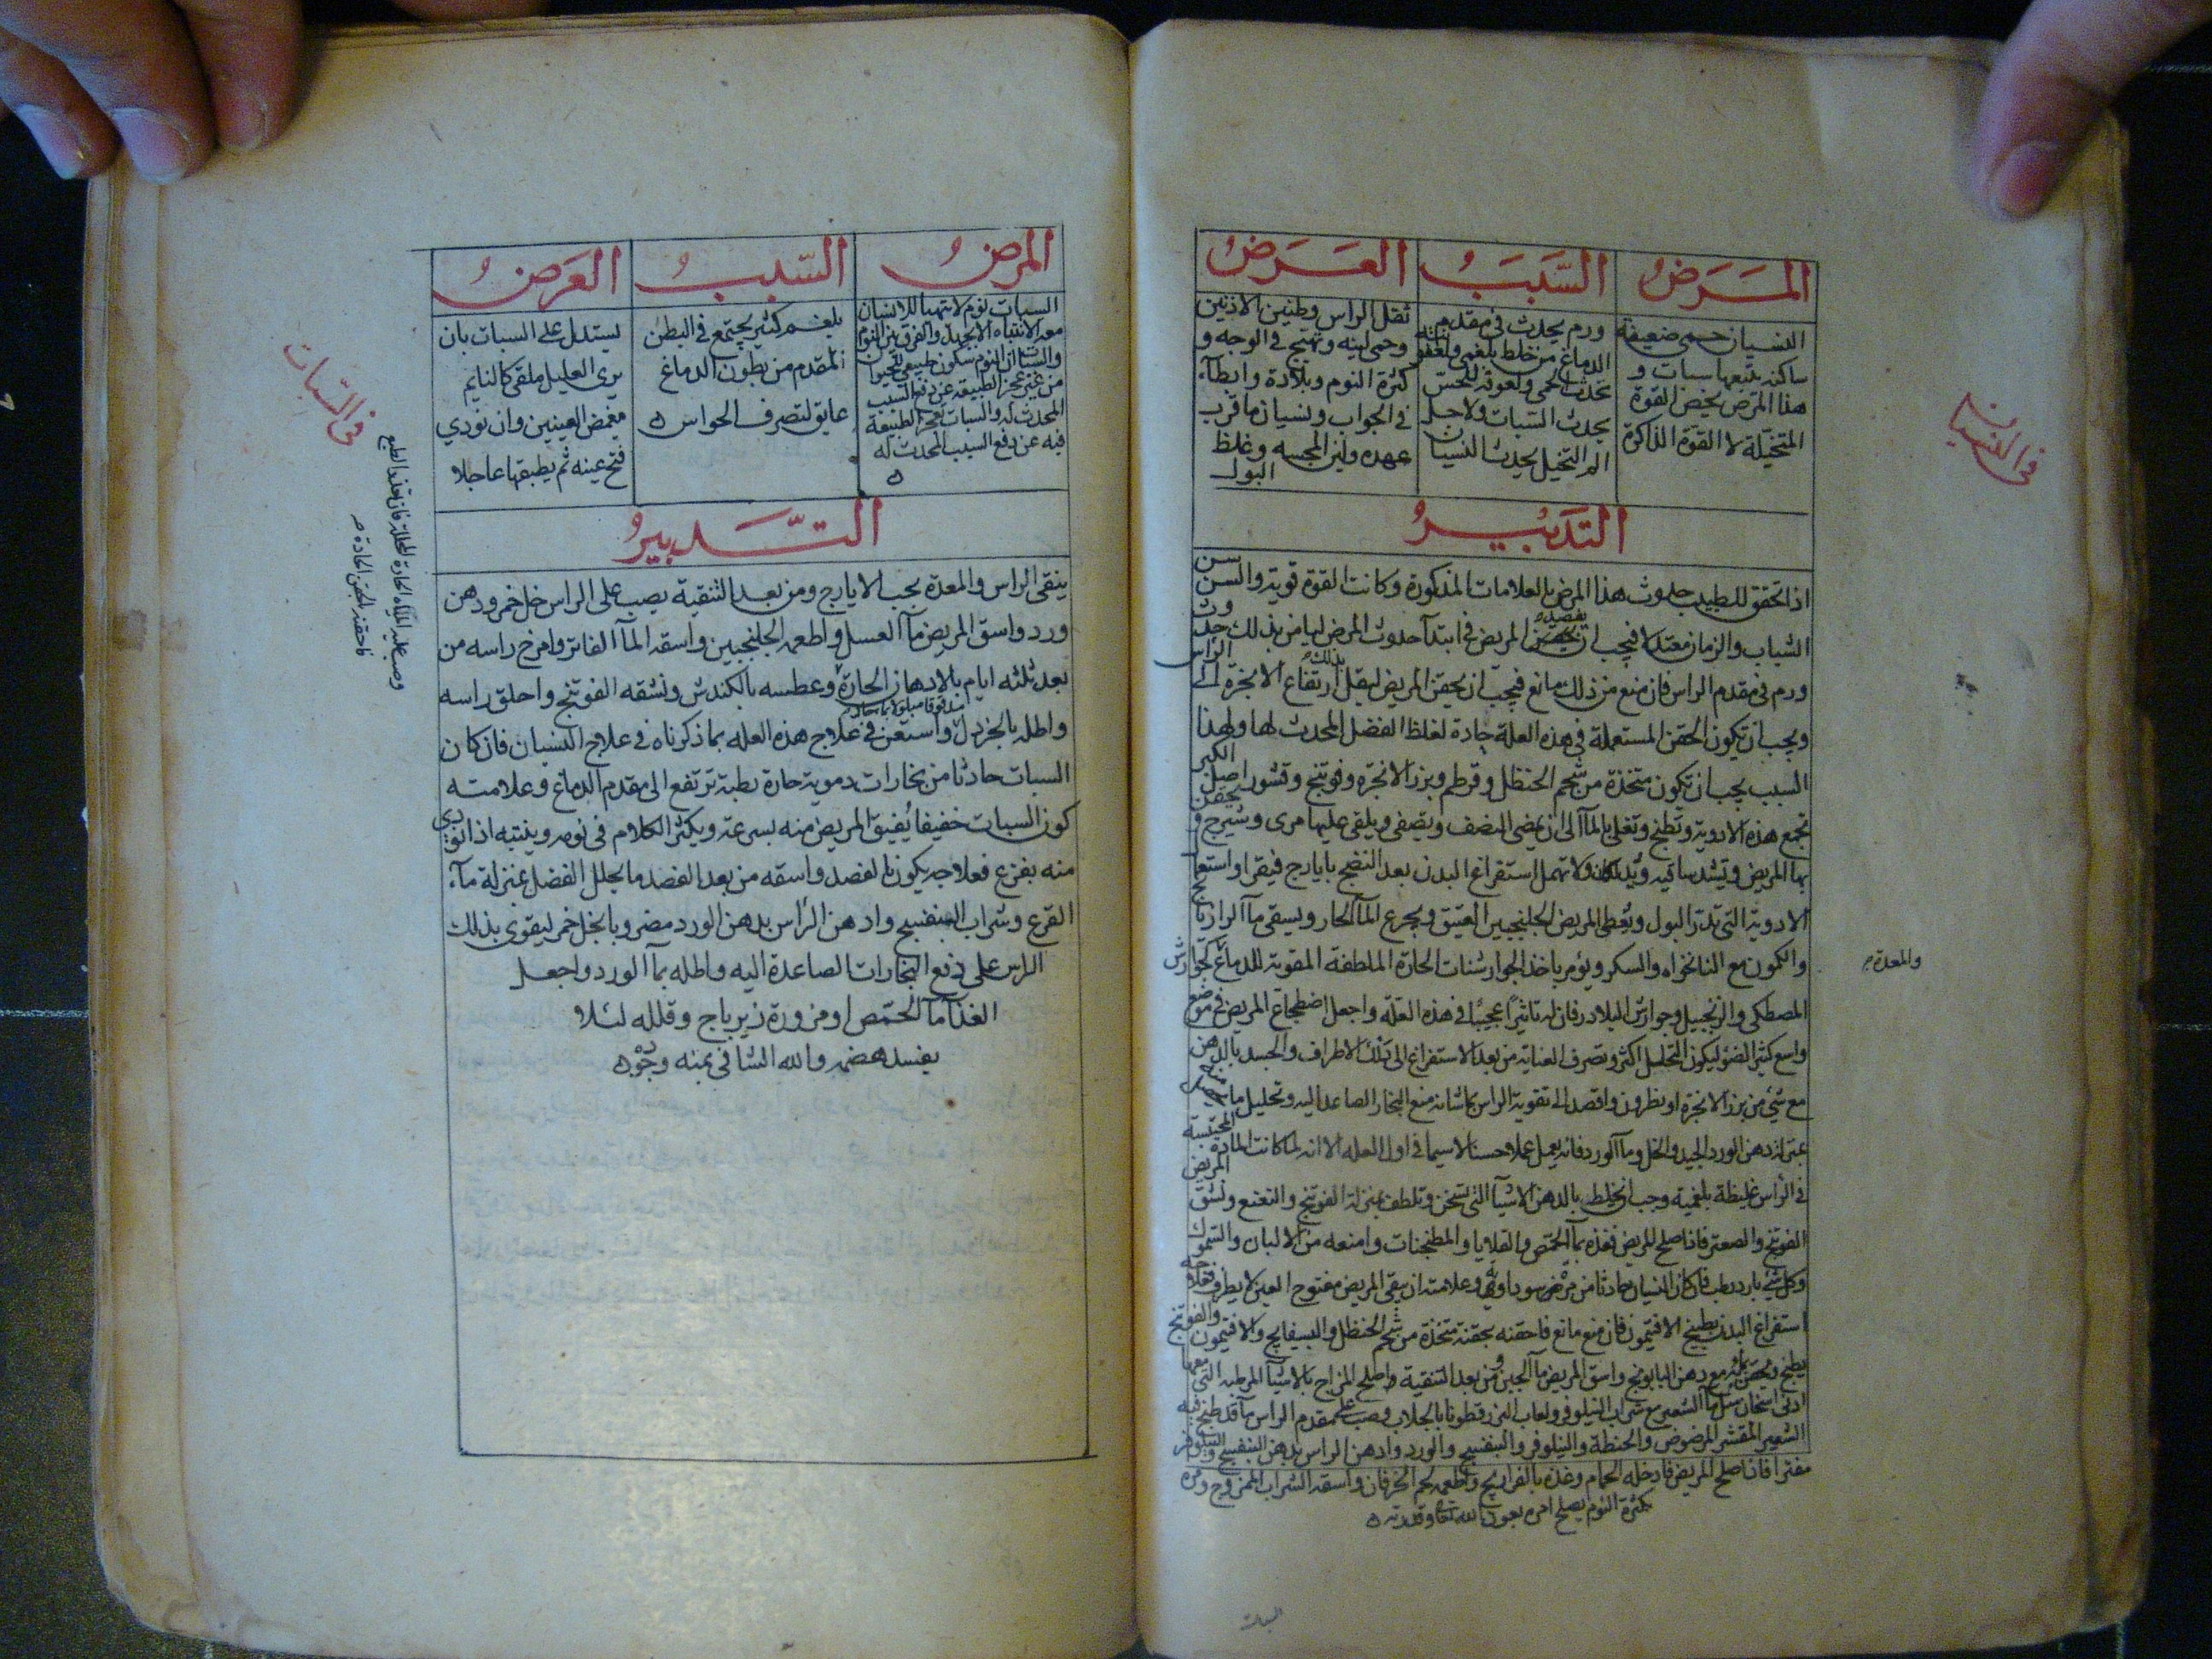 في النسيان
المرض
السبب
العرض
النسيان حمى ضعيفة
ساكنه يتبعها سبات و
هذا المرض يخص القوة
المتخيلة لا القوة الذاكرة
ورم يحدث في مقدم
الدماغ من خلط بلغمي ولعفونته
تحدث الحمى ولعوقه للحس
يحدث السبات ولاجل
الم التخيل يحدث النسيان
ثقل الراس وطنين الاذنين
وحمى لينه وتهيج في الوجه و
كثرة النوم وبلادة وابطآء
في الجواب ونسيان ما قرب
عهده ولين المجسه وغلظ
البول
التدبير
اذا تحقق للطبيب حدوث هذا المرض بالعلامات المذكورة وكانت القوة قوية والسن سن
الشباب والزمان معتدلا فيجب ان يفصده المريض في ابتدآ حدوث المرض ليامن بذلك حدوث
ورم في مقدم الراس فان منع من ذلك مانع فيجب ان يحقن المريض ليقل بذلك ارتفاع الابخرة الى الراس
ويجب ان تكون الحقن المستعملة في هذه العلة حادة لغلظ الفضل المحدث لها ولهذا
السبب يجب ان تكون متخذة من شحم الحنظل وقرطم وبزر الانجرة وفوتنج وقشور اصل الكبر
تجمع هذه الادوية وتطبخ وتغلى بالمآ الى ان يمضى النصف ويصفى ويلقى عليها مرى وشيرج ويحقن
بها المريض وتشد ساقيه ويدلكان ولا تهمل استفراغ البدن بعد النضج بايارج فيقرا واستعمال
الادوية التي تدر البول ويعطى المريض الجلنجبين العتيق ويجرع المآ الحار ويسقى مآ الرازيانج
والكمون مع النانخواه والسكر ويؤمر باخذ الجوارشنات الحارة الملطفة المقوية للدماغ كجوارش
والمعدة
المصطكى والزنجبيل وجوارش البلادر فان له تاثيرا عجيبا في هذه العلة واجعل اضطجاع المريض في موضع
واسع كثير الضو ليكون التحليل اكثر وتصرف العناية من بعد الاستفراغ الى دلك الاطراف والجسد بالدهن
مع شي من بزر الانجرة او نطرون واقصد الى تقوية الراس بما شانه منع البخار الصاعد اليه وتحليل ما حصل منه
بمنزلة دهن الورد الجيد والخل ومآ الورد فانه يعمل عملا حسنا لا سيما في اول العله الا انه لما كانت المادة المحتبسة
في الراس غليظة بلغمية وجب ان يخلط بالدهن الاشيآ التي تسخن وتلطف بمنزلة الفوتنج والنعنع ونشق المريض
الفوتنج والصعتر فاذا صلح للمريض فغذه بمآ الحمص والقلايا والمطجنات وامنعه من الالبان والسموك
وكل شي بارد رطب فان كان النسيان حادثا من مرض سوداوي وعلامته ان يبقى المريض مفتوح العين لا يطرف فعلاجه
استفراغ البدن بطبيخ الافتيمون فان منع مانع فاحقنه بحقنة متخذة من شحم الحنظل والبسفايج والافتيمون والفوتنج
يطبخ ويحقن بمآئه مع دهن البابونج واسق المريض مآ الجبن ومن بعد التنقية واصلح المزاج بالاشيآ المرطبه التي معها
ادنى اسخان مثل مآ الشعير مع شراب النيلوفر ولعاب البزرقطونا بالجلاب وصب على مقدم الراس مآ قد طبخ فيه
الشعير المقشر المرضوض والحنطة والنيلوفر والبنفسج والورد وادهن الراس بدهن البنفسج والنيلوفر
مفترا فاذا صلح المريض فادخله الحمام وغذه بالفراريج واطعمه لحم الخرفان واسقه الشراب الممزوج ومره
بكثرة النوم يصلح امره بعون الله تعالى وقدرته
السبات
في السبات
المرض
السبب
العرض
السبات نوم لا يتهيا للانسان
معه الانتباه الا بجهد والفرق بين النوم
والسبات ان النوم سكون طبيعي للحيوان
من غير عجز الطبيعة عن دفع السبب
المحدث له والسبات تعجز الطبيعة
فيه عن دفع السبب المحدث له
بلغم كثير يجتمع في البطن
المقدم من بطون الدماغ
عايق لتصرف الحواس
يستدل على السبات بان
يرى العليل ملقى كالنايم
مغمض العينين وان نودي
فتح عينه ثم يطبقها عاجلا
التدبير
ينقى الراس والمعدة بحب الايارج ومن بعد التنقية يصب على الراس خل خمر ودهن
ورد واسق المريض مآ العسل واطعمه الجلنجبين واسقه المآ الفاتر وامرخ راسه من
بعد ثلثه ايام بالادهان الحارة وعطسه بالكندش ونشقه الفوتنج واحلق راسه
واطله بالخردل مدقوقا مبلولا بمآ حار واستعن في علاج هذه العله بما ذكرناه في علاج النسيان فان كان
السبات حادثا من بخارات دموية حارة رطبة ترتفع الى مقدم الدماغ وعلامته
كون السبات خفيفا يفيق المريض منه بسرعة ويكثر الكلام في نومه وينتبه اذا نودي
منه بفزع فعلاجه يكون بالفصد واسقه من بعد الفصد ما يحلل الفضل بمنزلة مآء
القرع وشراب البنفسج وادهن الراس بدهن الورد مضروبا بخل خمر ليقوى بذلك
الراس على دفع البخارات الصاعدة اليه واطله بمآ الورد واجعل
الغذآ مآ الحمص او مزورة زيرباج وقلله لئلا
يفسد هضمه والله الشافي بمنه وجوده
وصب عليه المياه الحارة المحللة فان تعذر الطبع
فاحقنه بالحقن الحادة